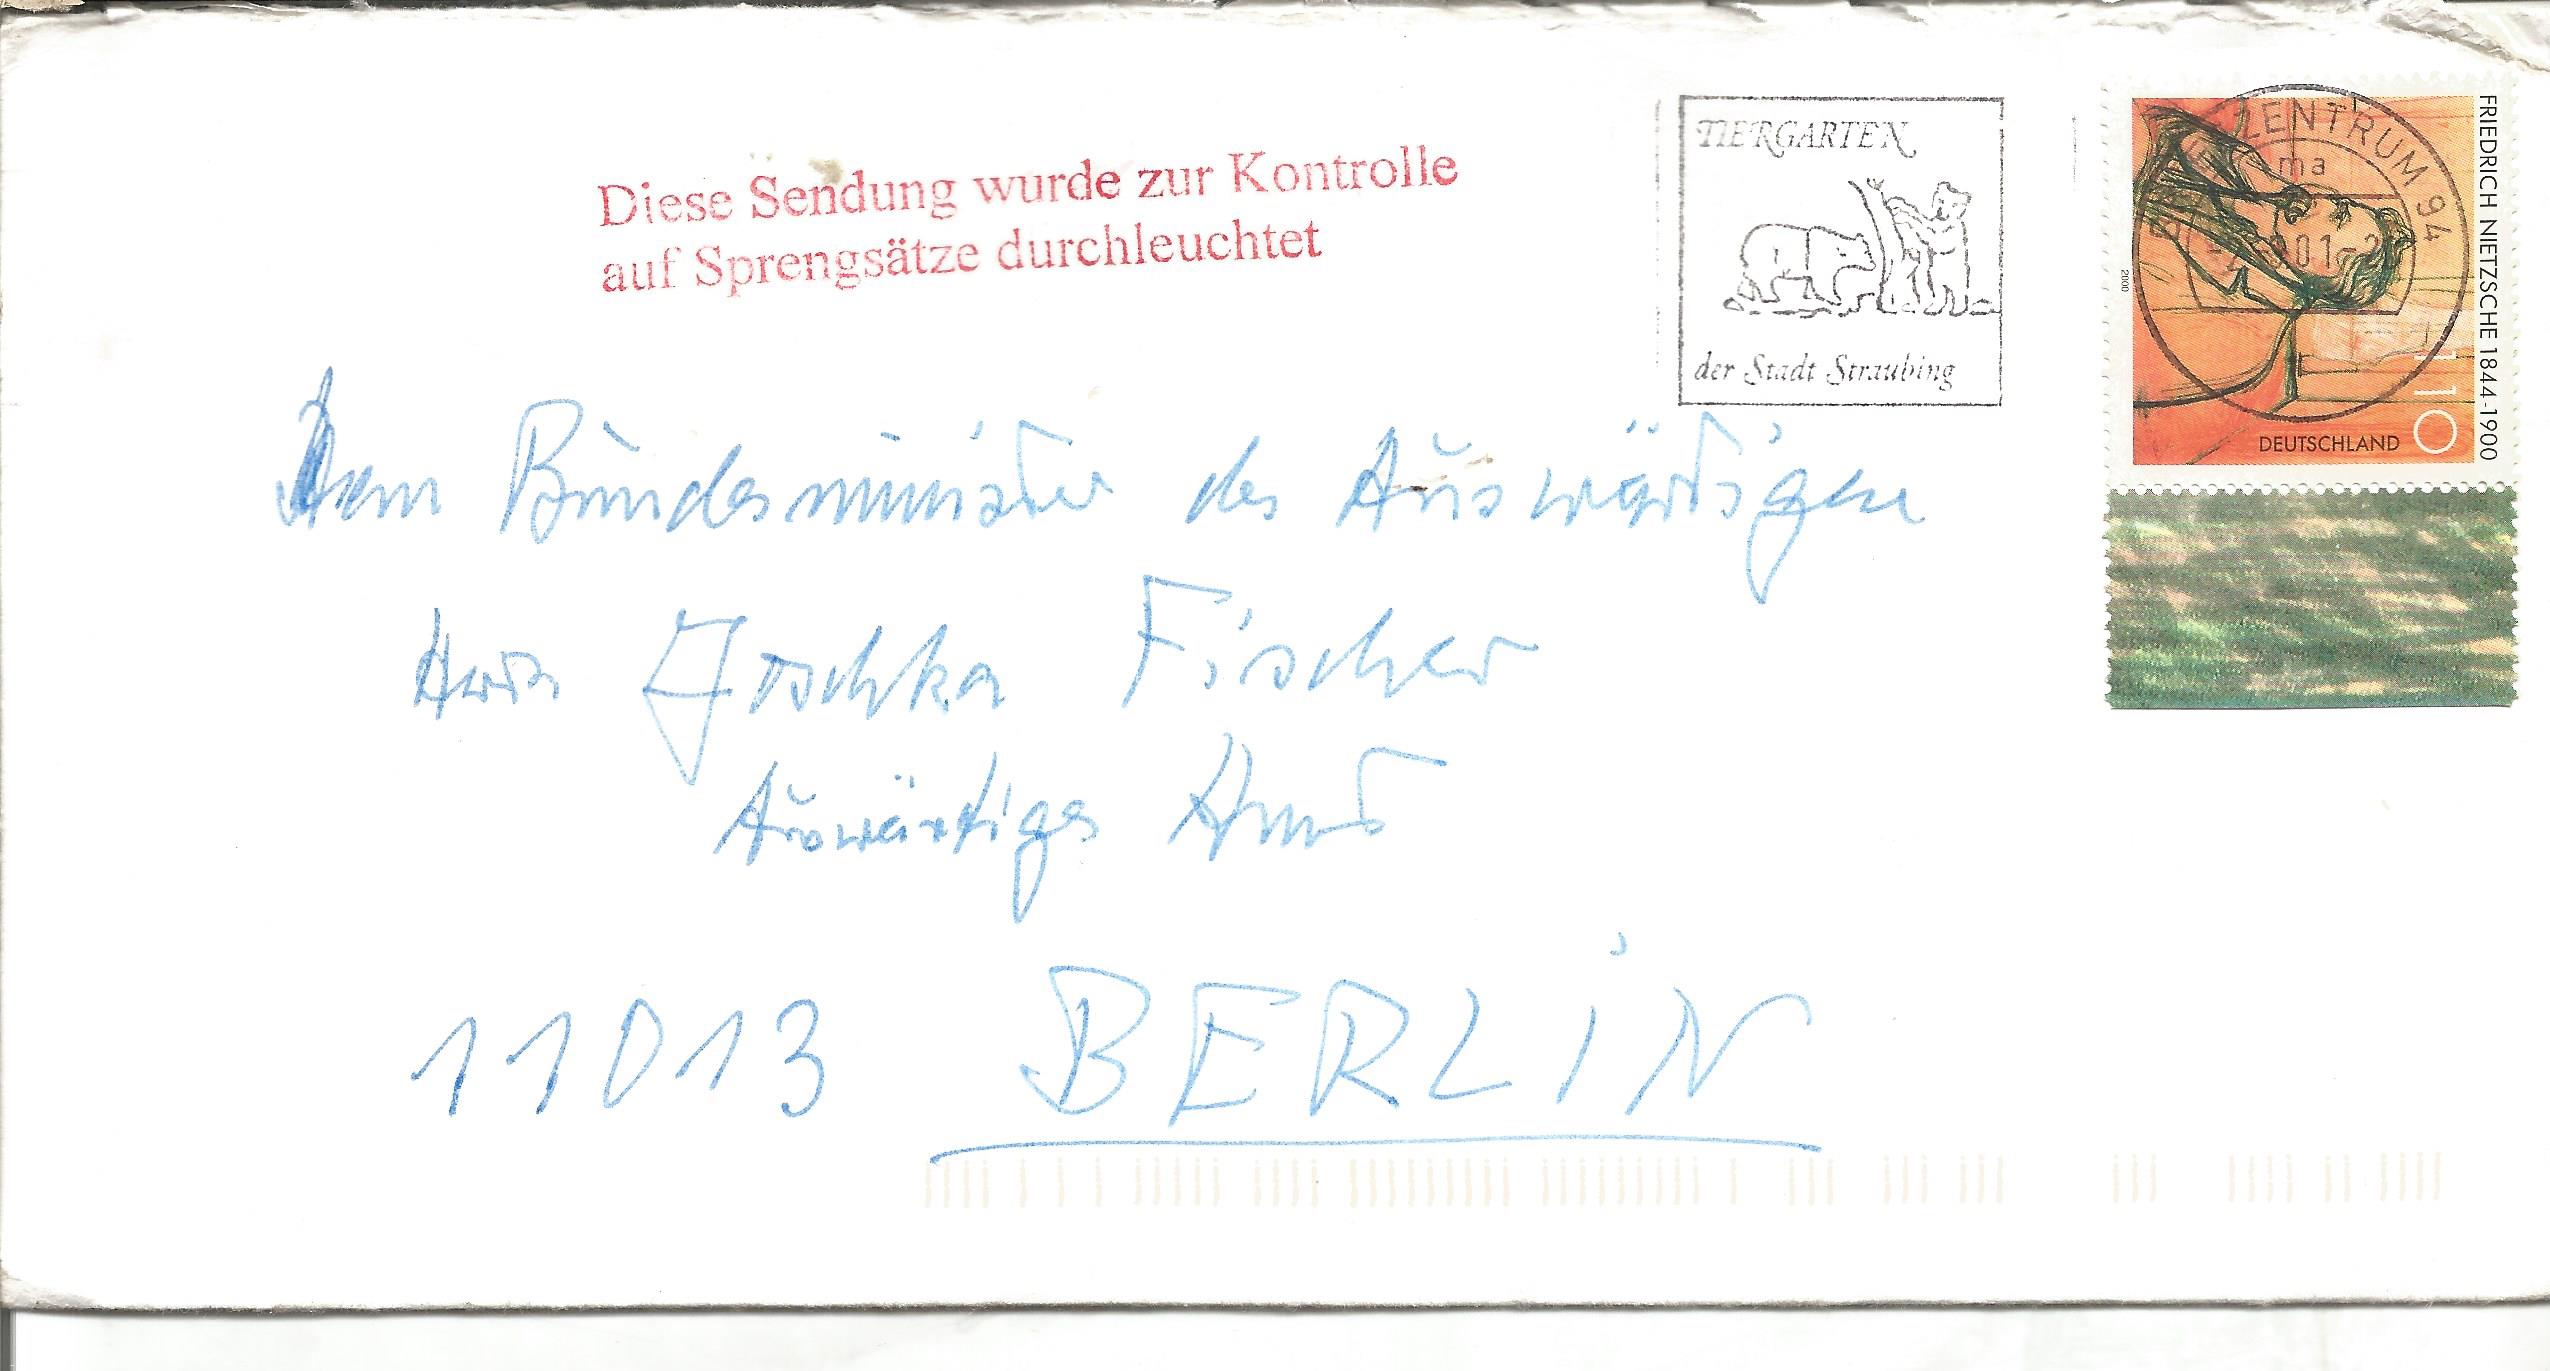 Diese Sendung wurde zur Kontrolle
auf Sprengsätze durchleuchtet
TIERGARTEN
der Stadt Straubing
ZENTRUM 94
ma
FRIEDRICH NIETZSCHE 1844-1900
110
DEUTSCHLAND
2000
Dem Bundesminister des Auswärtigen
Herrn Joschka Fischer
Auswärtiges Amt
11013 BERLiN